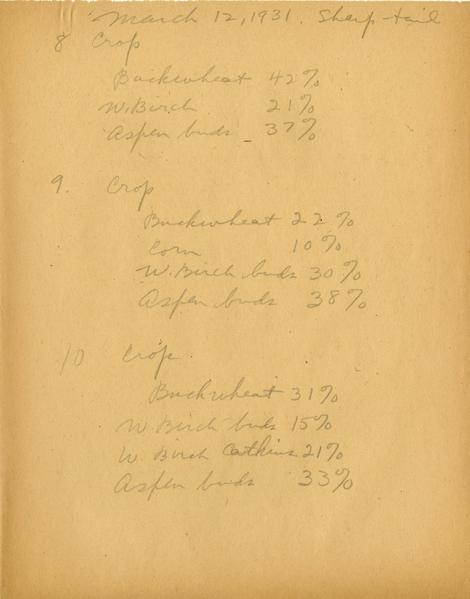 March 12, 1931. Sharp-tail
8 Crop
Buckwheat 42%
W. Birch 21%
Aspen buds - 37%
9. Crop
Buckwheat 22%
Corn 10%
W. Birch buds 30%
Aspen buds 38%
10 Crop
Buckwheat 31%
W Birch buds 15%
W Birch Catkins 21%
Aspen buds 33%